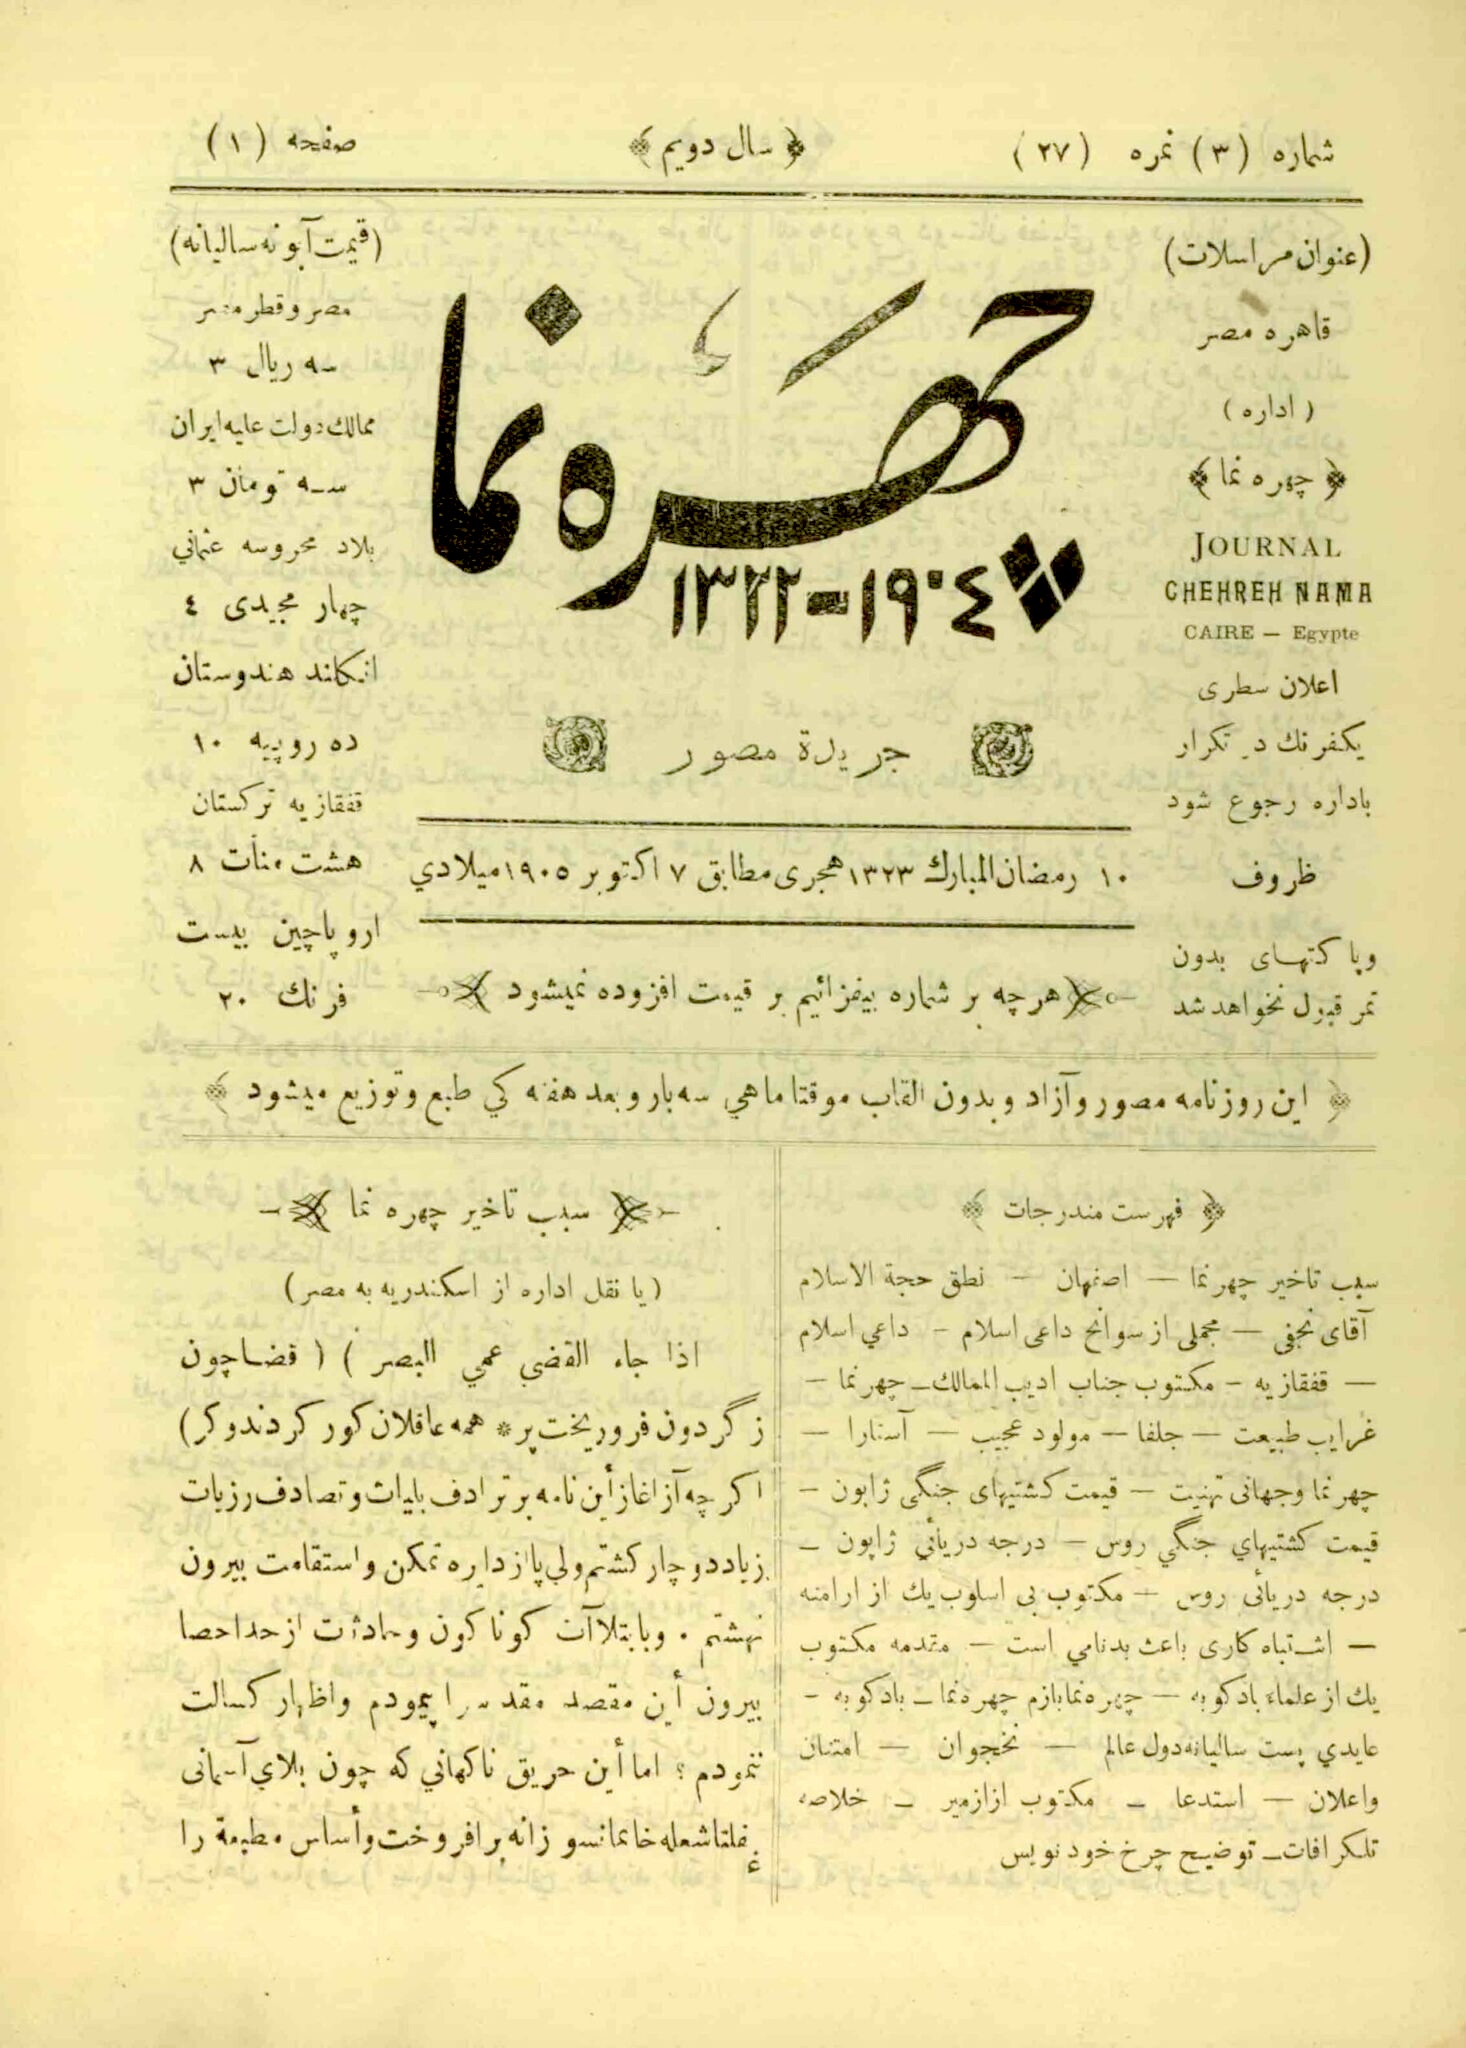 شماره (٣) نمره (٢٧)
سال دويم
صفحه (١)
(عنوان مراسلات)
قاهره مصر
(اداره)
چهره نما
JOURNAL
CHEHREH NAMA
CAIRE — Egypte
اعلان سطری
يكفرنك در تكرار
باداره رجوع شود
ظروف
وپاكتهای بدون
تمر قبول نخواهد شد
چهره نما
١٩٠٤ = ١٣٢٢
جريدة مصور
١٠ رمضان المبارك ١٣٢٣ هجری مطابق ٧ اكتوبر ١٩٠٥ ميلادي
هر چه بر شماره بيفزائيم بر قيمت افزوده نميشود
(قيمت آبونه ساليانه)
مصر وقطر مصر
سه ريال ٣
ممالك دولت عليه ايران
سه تومان ٣
بلاد محروسه عثماني
چهار مجيدی ٤
انكلند هندوستان
ده روپيه ١٠
قفقازيه تركستان
هشت منات ٨
اروپا چين بيست
فرنك ٢٠
اين روزنامه مصور وآزاد وبدون القاب موقتا ماهي سه بار وبعد هفته كي طبع وتوزيع ميشود
فهرست مندرجات
سبب تاخير چهر نما — اصفهان — نطق حجة الاسلام
آقای نجفی — مجملی از سوانح داعی اسلام — داعي اسلام
— قفقازيه — مكتوب جناب اديب الممالك — چهر نما —
غرايب طبيعت — جلفا — مولود عجيب — آستارا —
چهر نما وجهانی تهنيت — قيمت كشتيهای جنگی ژاپون —
قيمت كشتيهاي جنگي روس — درجه دريأئي ژاپون —
درجه دريأئی روس — مكتوب بی اسلوب يك از ارامنه
— اشتباه كاری باعث بدنامي است — مقدمه مكتوب
يك از علماء بادكوبه — چهره نما بازم چهره نما — بادكوبه —
عايدي پست ساليانه دول عالم — نخجوان — امتنان
واعلان — استدعا — مكتوب از ازمير — خلاصه
تلكرافات — توضيح چرخ خود نويس
سبب تاخير چهره نما
(يا نقل اداره از اسكندريه به مصر)
اذا جاء القضي عمي البصر ) ( قضا چون
ز گردون فرو ريخت پر * همه عاقلان كور كردند وكر)
اكر چه آز اغاز أين نامه بر ترادف بليات وتصادف رزيات
زياد دو چار كشتم ولي پا از دايره تمكن واستقامت بيرون
نهشتم . وبابتلاآت كوناكون وحادثت از حد احصا
بيرون أين مقصد مقدس را پيمودم واظهار كسالت
ننمودم ؛ اما أين حريق ناكهاني كه چون بلاي آسمانی
غفلتا شعله خانمانسوزانه بر افروخت وأساس مطبعة را